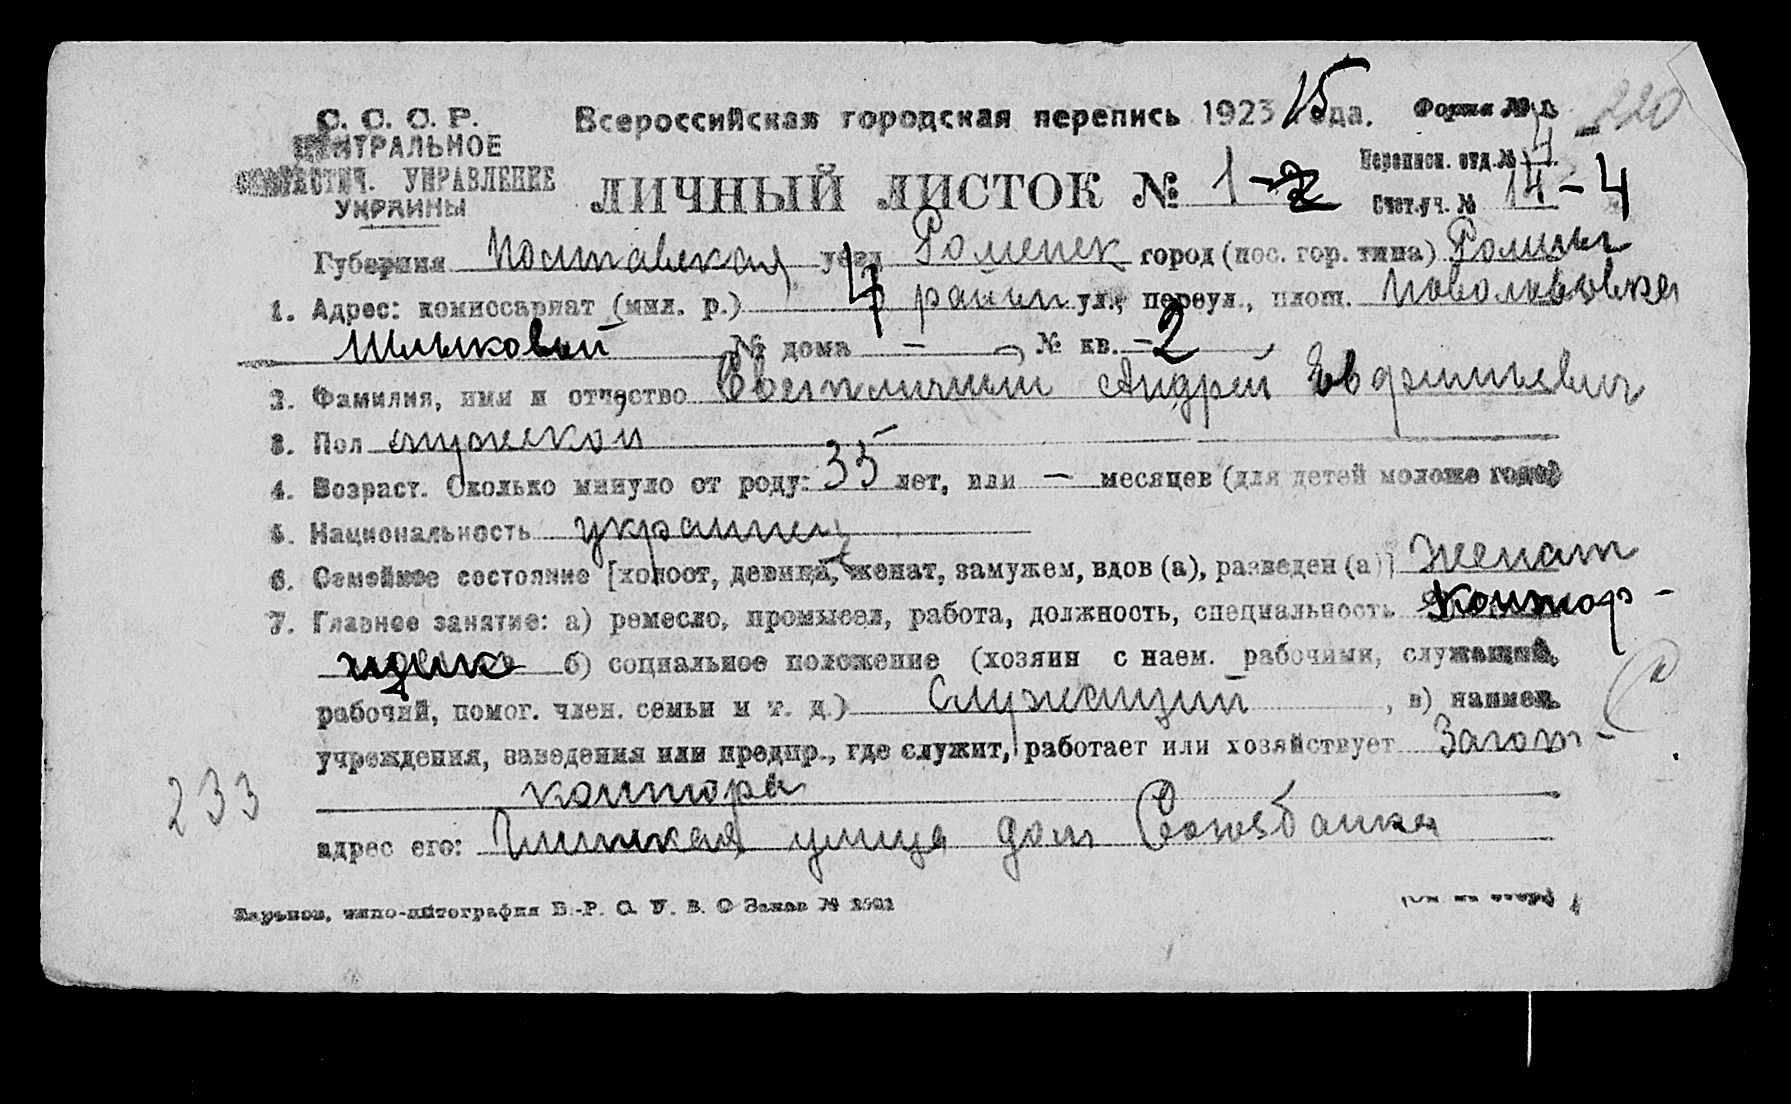 С. С. С. Р.
ЦЕНТРАЛЬНОЕ
СТАТИСТИЧ. УПРАВЛЕНИЕ
УКРАИНЫ
Всероссийская городская перепись 1923 года. Форма №
220
ЛИЧНЫЙ ЛИСТОК № 1-2
Переписн. отд. № 4
Счетн. уч. № 14-4
Губерния Полтавская уезд Роменск город (пос. гор. типа) Ромны
1. Адрес: комиссариат (мил. р.) 4 район ул., переул., площ.
№ дома — № кв. - 2
2. Фамилия, имя и отчество Светличный Андрей
3. Пол мужской
4. Возраст. Сколько минуло от роду: 35 лет, или — месяцев (для детей моложе года)
5. Национальность украинец
6. Семейное состояние [холост, девица, женат, замужем, вдов (а), разведен (а)] женат
7. Главное занятие: а) ремесло, промысел, работа, должность, специальность контор-
щик б) социальное положение (хозяин с наем. рабочими, служащий,
рабочий, помог. член. семьи и т. д.) Служащий , в) наимен.
учреждения, заведения или предпр., где служит, работает или хозяйствует Загот-
контора
233
адрес его: улица дом Союзбанка
Харьков, типо-литография В.-Р. О. У. В. О Заказ №